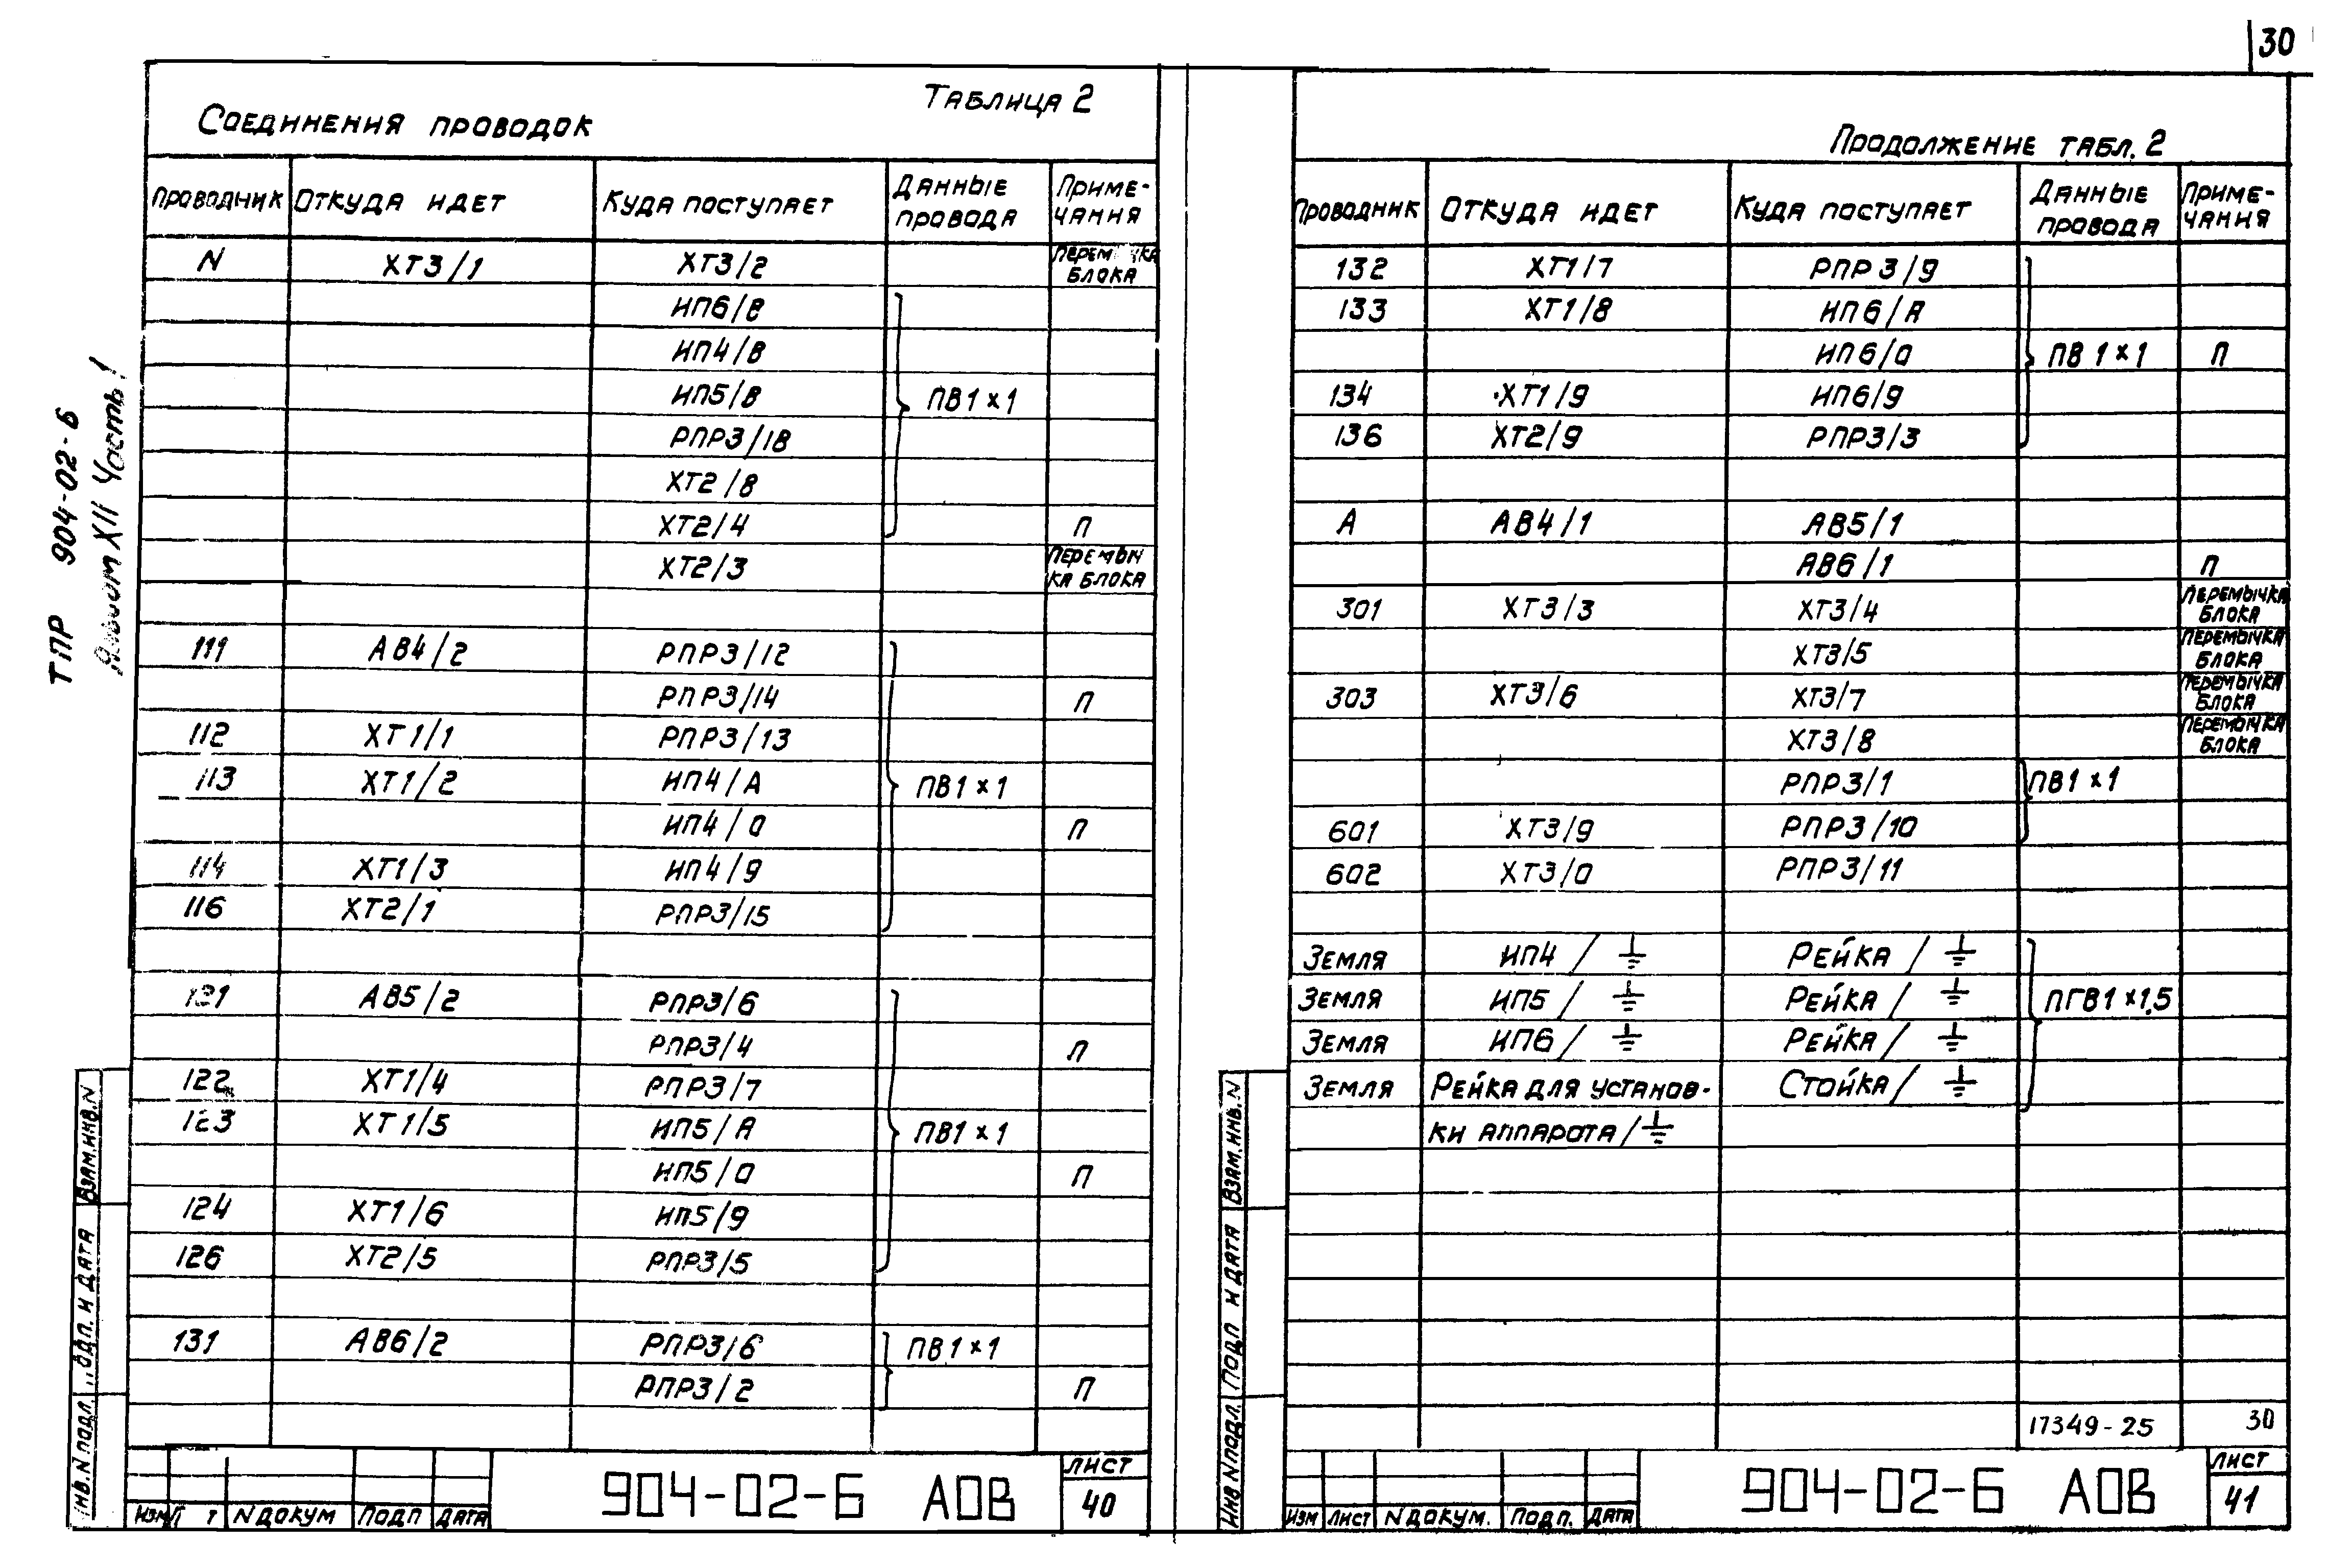 30
ТПР 904-02-Б
Альбом XII Часть 1
Таблица 2
Соединения проводок
Проводник Откуда идет Куда поступает Данные провода Примечания
N ХТ3/1 ХТ3/2 Перемычка блока
ИП6/8
ИП4/8
ИП5/8 ПВ1×1
РПР3/18
ХТ2/8
ХТ2/4 П
ХТ2/3 Перемычка блока
111 АВ4/2 РПР3/12
РПР3/14 П
112 ХТ1/1 РПР3/13
113 ХТ1/2 ИП4/А ПВ1×1
ИП4/0 П
114 ХТ1/3 ИП4/9
116 ХТ2/1 РПР3/15
АВ5/2 РПР3/6
РПР3/4 П
122 ХТ1/4 РПР3/7
123 ХТ1/5 ИП5/А ПВ1×1
ИП5/0 П
124 ХТ1/6 ИП5/9
126 ХТ2/5 РПР3/5
131 АВ6/2 РПР3/6 ПВ1×1
РПР3/2 П
Взам.инв.N
Подп. и дата
Инв.N подл.
Изм N докум Подп Дата
904-02-Б АОВ
Лист
40
Продолжение табл. 2
Проводник Откуда идет Куда поступает Данные провода Примечания
132 ХТ1/7 РПР3/9
133 ХТ1/8 ИП6/А
ИП6/0 ПВ1×1 П
134 ХТ1/9 ИП6/9
136 ХТ2/9 РПР3/3
А АВ4/1 АВ5/1
АВ6/1 П
301 ХТ3/3 ХТ3/4 Перемычка блока
ХТ3/5 Перемычка блока
303 ХТ3/6 ХТ3/7 Перемычка блока
ХТ3/8 Перемычка блока
РПР3/1 ПВ1×1
601 ХТ3/9 РПР3/10
602 ХТ3/0 РПР3/11
Земля ИП4/⏚ Рейка/⏚
Земля ИП5/⏚ Рейка/⏚ ПГВ1×1,5
Земля ИП6/⏚ Рейка/⏚
Земля Рейка для установ- Стойка/⏚
ки аппарата/⏚
17349-25 30
Взам.инв.N
Подп и дата
Инв N подл.
Изм Лист N докум. Подп. Дата
904-02-Б АОВ
Лист
41